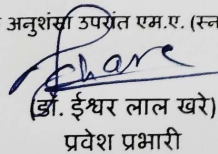 अनुशंसा उपरांत एम.ए. (स्न
(डॉ. ईश्वर लाल खरे)
प्रवेश प्रभारी